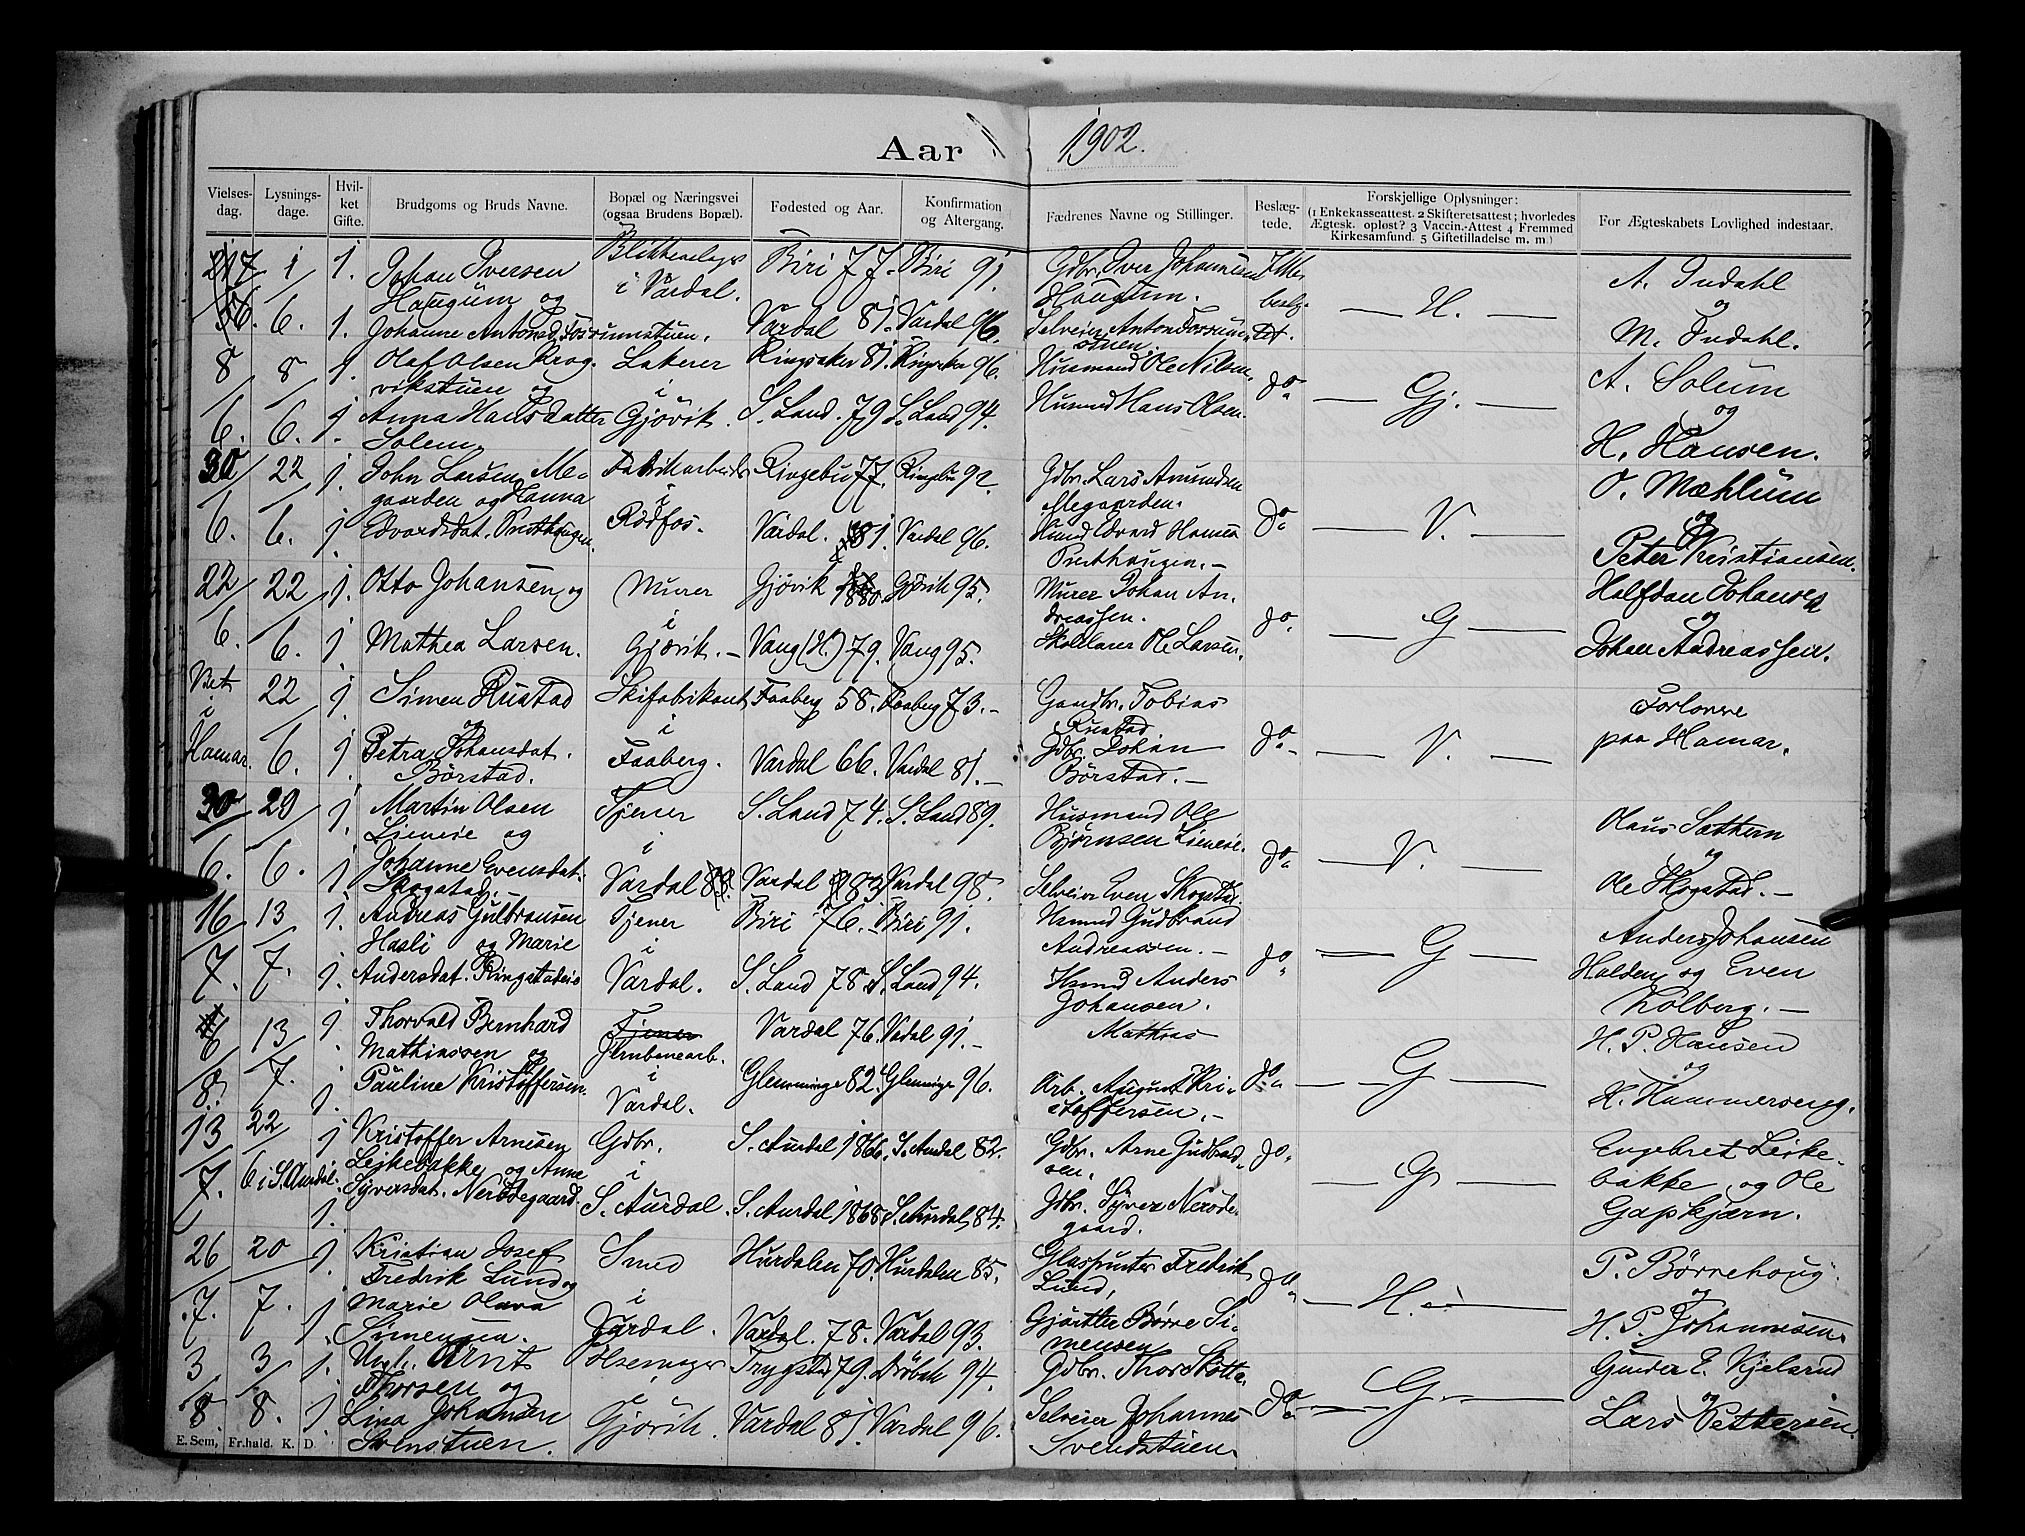 Aar 1902.
Vielses-dag. Lysnings-dage. Hvil-ket Gifte. Brudgoms og Bruds Navne. Bopæl og Næringsvei (ogsaa Brudens Bopæl). Fødested og Aar. Konfirmation og Altergang. Fædrenes Navne og Stillinger. Beslæg-tede. Forskjellige Oplysninger: (1 Enkekasseattest. 2 Skifteretsattest; hvorledes Ægtesk. opløst? 3 Vaccin.-Attest 4 Fremmed Kirkesamfund. 5 Giftetilladelse m. m.) For Ægteskabets Lovlighed indestaar.
1 1. Johan Iversen Biri 77. Biri 91. Gdbr. Iver Johannesen A. Indahl
Haugum og i Vardal. Haugum. — H. — og
6. 1. Johanne Antonsd. Fossumstuen. Vardal 81. Vardal 96. Selveier Anton Fossum-stuen. M. Indahl.
8 8 1. Olaf Olsen Krog- Lakerer Ringsaker 81. Ringsaker 96. Husmand Ole Nilsen. do A. Solum
vikstuen og i — Gj. — og
6. 6. 1. Anna Hansdatter Gjøvik. S. Land. 79 S. Land 94. Husmd Hans Olsen. H. Hansen.
Solem
30 22 1. John Larsen Me- Fabrikarbeider Ringebu 77. Ringebu 92. Gdbr. Lars Amundsen O. Mæhlum
gaarden og Hanna i Megaarden. do — V. — og
6. 6. 1 Edvardsdat. Rødfos. Vardal. 81. Vardal 96. Husmd Edvard Hansen Peter Kristiansen.
22 22 1. Otto Johansen og Murer Gjøvik 1880. Gjøvik 95. Murer Johan An- Halfdan Johansen
i dreassen. do — G — og
6. 6. 1 Mathea Larsen. Gjøvik. — Vang (H.) 79. Vang 95. Ole Larsen. Johan Andreassen.
Viet 22 1 Simen Rustad Skifabrikant Faaberg 58. Faaberg 73. — Gaardbr. Tobias Forlovere
i og i Rustad do — V. — paa Hamar.
Hamar. 6. 1. Petra Johansdat. Faaberg. Vardal 66. Vardal 81. — Gdbr. Johan
Børstad. Børstad. —
30 20 1. Martin Olsen Tjener S. Land 74. S. Land 89. Husmand Ole Olaus Sæthern
og i Bjørnsen do — V. — og
6. 6. 1 Johanne Evensdat. Vardal Vardal 83 Vardal 98. Selveier Even Skogstad. Ole Skogstad. —
Skogstad. —
16 13 1. Andreas Gulbransen Tjener Biri 76. — Biri 91. Husmd Gudbrand Anders Johansen
Hasli og Marie i Andreassen. — do — G — Halden og Even
7. 7. 1 Andersdat. Vardal. S. Land 78. S. Land 94. Husmd Anders Kolberg. —
Johansen.
6 13 1. Thorvald Bernhard Tjener Vardal 76. Vardal 91. — Mathias H. P. Hansen
Mathiassen og Jernbanearb. do — G — og
8. 7. 1. Pauline Kristoffersen. i Vardal. Glemminge 82. Glemminge 96. Arb. August Kri-stoffersen. — K. Hammerseng.
13 22 1 Kristoffer Arnesen Gdbr. S. Aurdal 1866. S. Aurdal 82. Gdbr. Arne Gudbrand- do Engebret Leike-
Leikebakke og Anne i sen. — G — bakke og Ole
7. 6 i S. Aurdal. 1. Syversdat. Nerødegaard. S. Aurdal. S. Aurdal 1868. S. Aurdal 84. Gdbr. Syver Nerøde-gaard. Gapkjærn.
26 20 1 Kristian Josef Smed Hurdalen 70. Hurdalen 85. Glaspuster Fredrik P. Børrehaug
Fredrik Lund og i Lund, do — H. — og
7. 7. 1. Marie Olava Vardal. Vardal. 78. Vardal 93. Gjørtler Børre Si- H. P. Johannesen.
Simensen. mensen
3 3 1. Ungk. Arnt Pølsemager Trygstad 79. Drøbak 94. Gdbr. Thor Skotte. Gunder E. Kjelsrud
Thorsen og i do — G. — og
8. 8. 1. Lina Johansen Gjøvik. Vardal 81. Vardal 96. Selveier Johannes Lars Pettersen.
Svenstuen. Svendstuen.
E. Sem, Fr.hald. K. D.